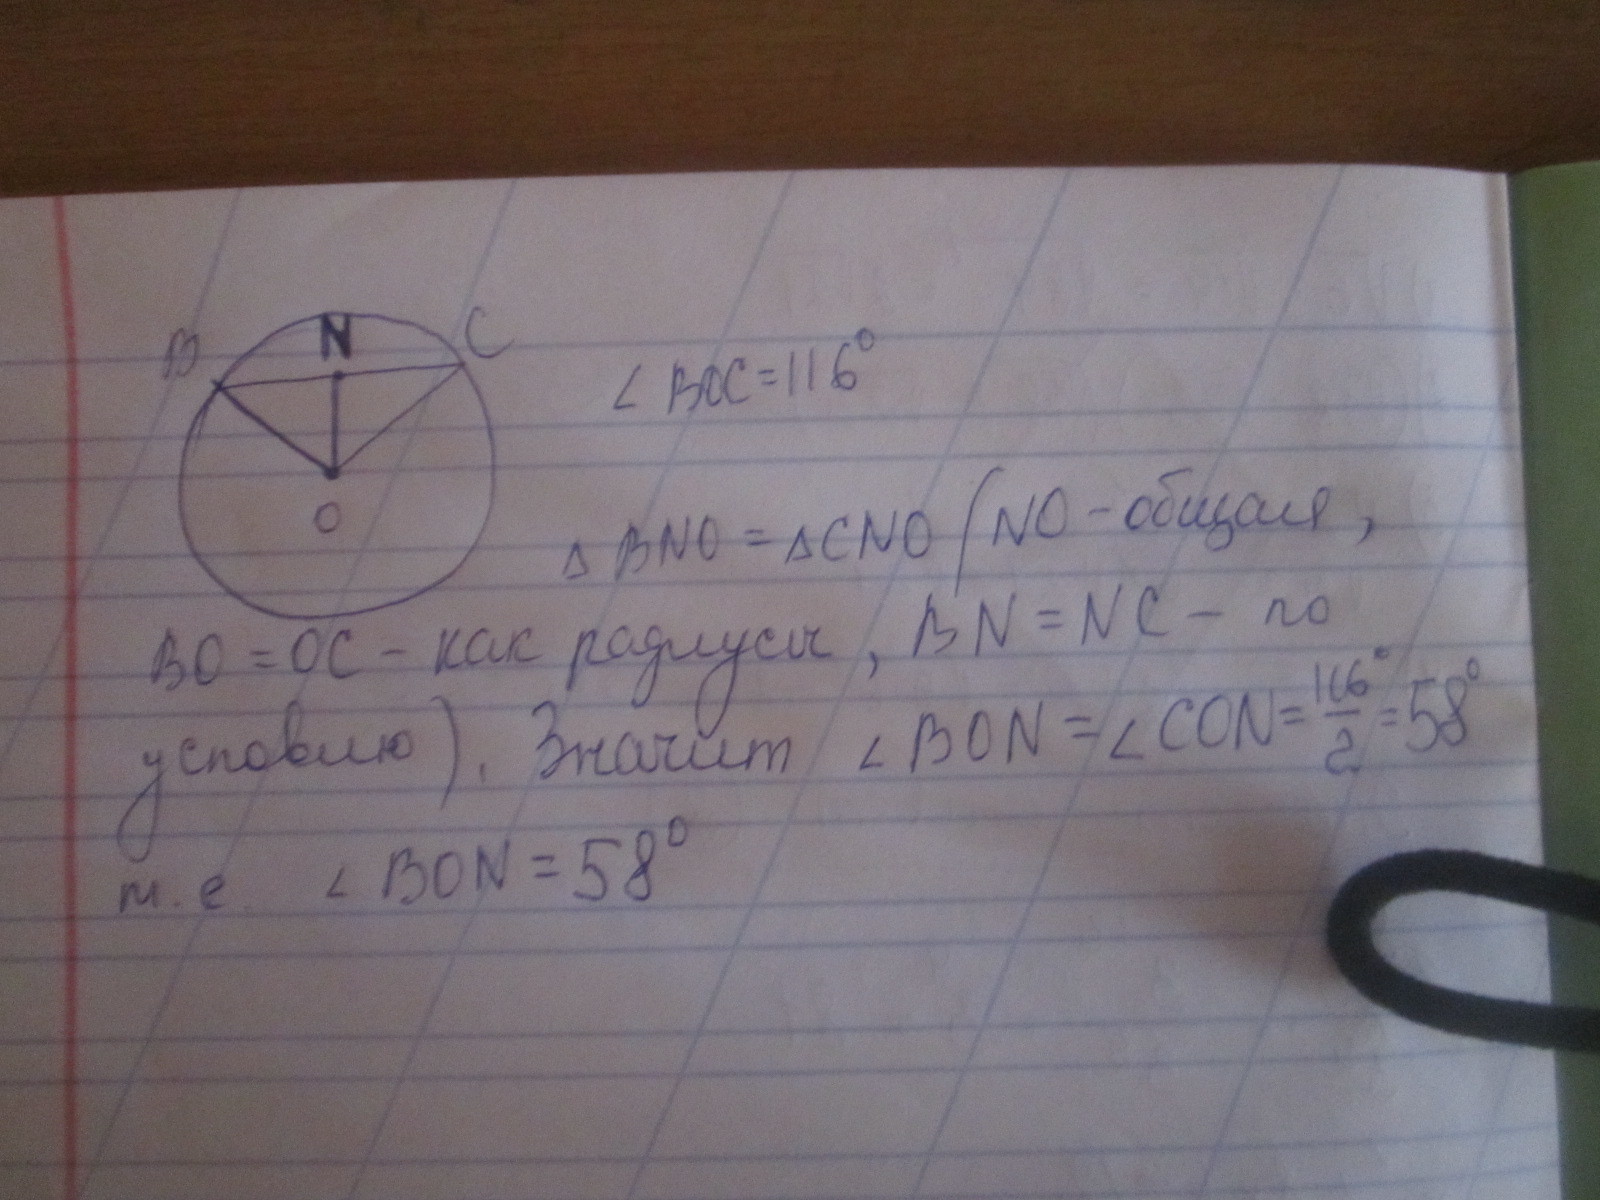 B N C
∠ BOC = 116°
O
△ BNO = △ CNO (NO - общая,
BO = OC - как радиусы, BN = NC - по
условию). Значит ∠ BON = ∠ CON = 116°/2 = 58°
т.е. ∠ BON = 58°